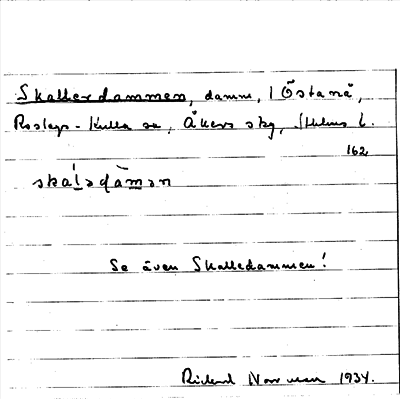 Skallerdammen, damm, l Östanå,
Roslags-Kulla sn, Åkers skg, Sthlms l.
162
skàl̲ədàm̲ən
Se även Skalledammen!
Rickard 1934.